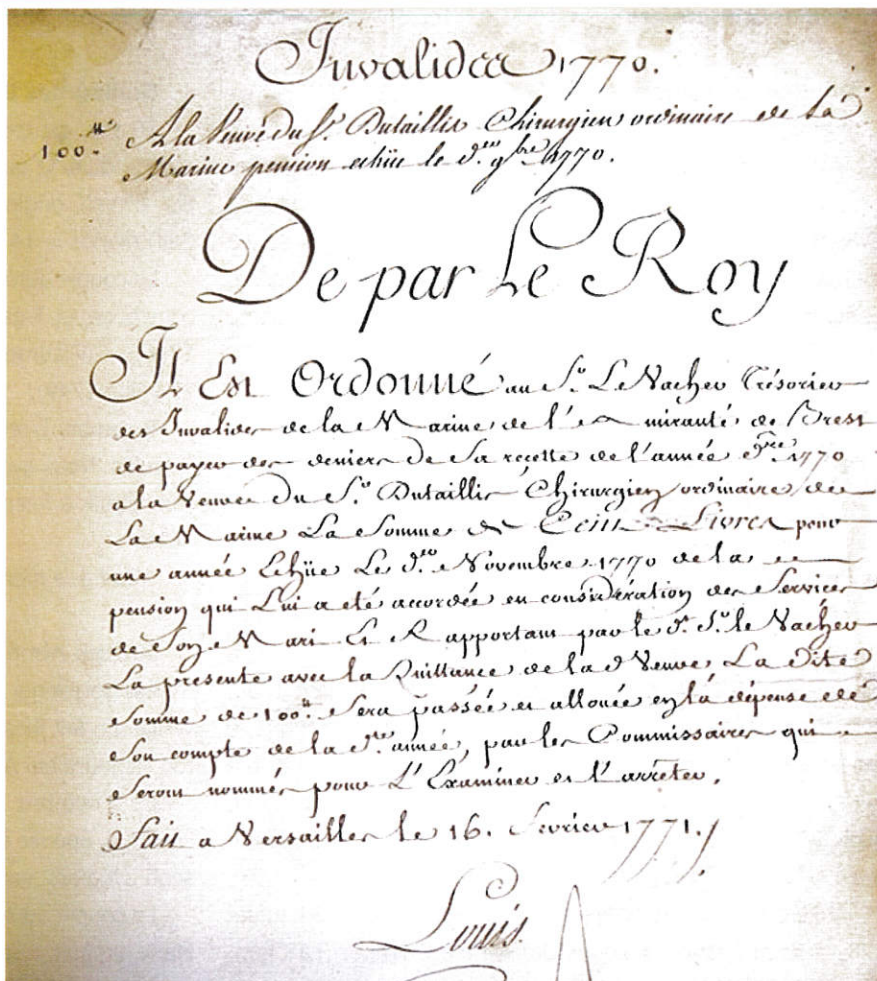 Invalides 1770.
100.ᵗᵗ A la Veuve du S.ʳ Dutaillis Chirurgien ordinaire de la
Marine pension echüe le d.ᵉʳ 9.ᵇʳᵉ 1770.
De par Le Roy
Il Est Ordonné au S.ʳ Le Vacher Trésorier
des Invalides de la Marine de l'Amirauté de Brest
de payer des deniers de Sa recette de l'année 1770
a la Veuve Du S.ʳ Dutaillis Chirurgien ordinaire de
La Marine La Somme de Cent Livres pour
une année Echüe Le d.ᵉʳ Novembre 1770 de la
pension qui Lui a eté accordée en considération des Services
de Son Mari Et Rapportant par le d. S.ʳ le Vacher
La présente avec la Quittance de la d Veuve La dite
Somme de 100.ᵗᵗ Sera passée et allouée en la dépense de
Son compte de la d.ᵗᵉ année, par les Commissaires qui
Seront nommés pour L'Examiner et l'arrêter.
Fait a Versailles le 16. fevrier 1771.
Louis